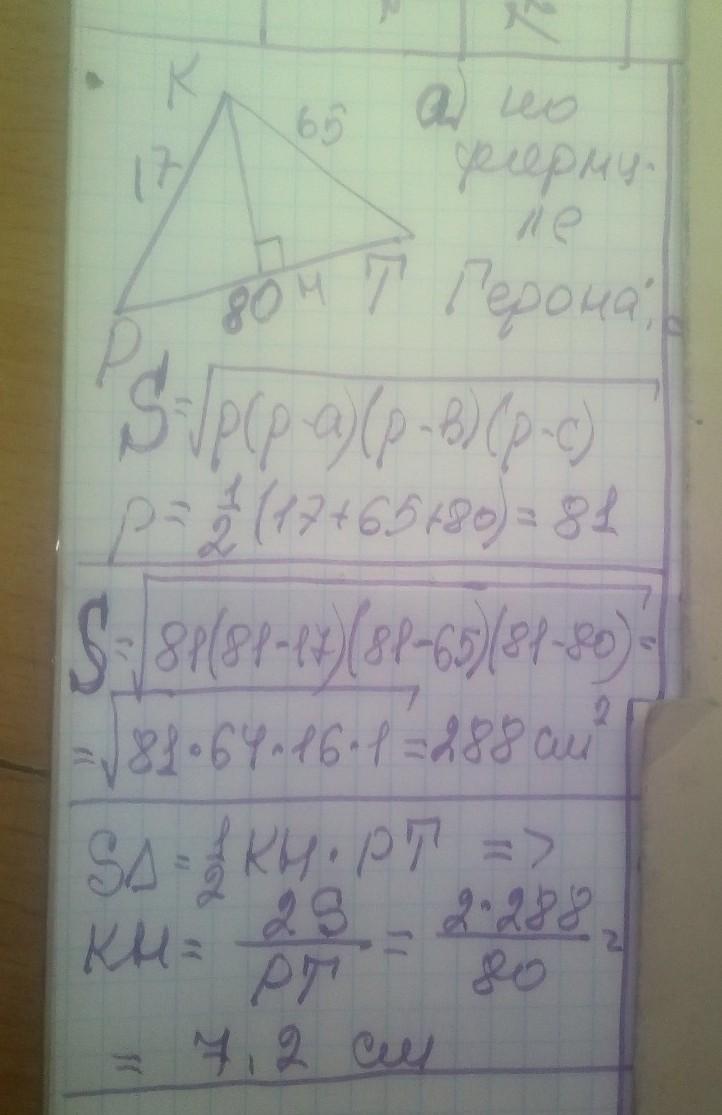 K
65
а) по
17
формц-
ле
80 H T Герона:
P
S=√p(p-a)(p-b)(p-c)
p=1/2(17+65+80)=81
S=√81(81-17)(81-65)(81-80)=
=√81·64·16·1=288 см²
S△=1/2KH·PT =>
KH=2S/PT=2·288/80=
= 7,2 см